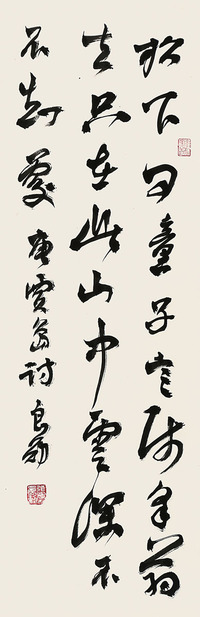 松下问童子言师采药
去只在此山中雲深不
不知處唐賈島詩良